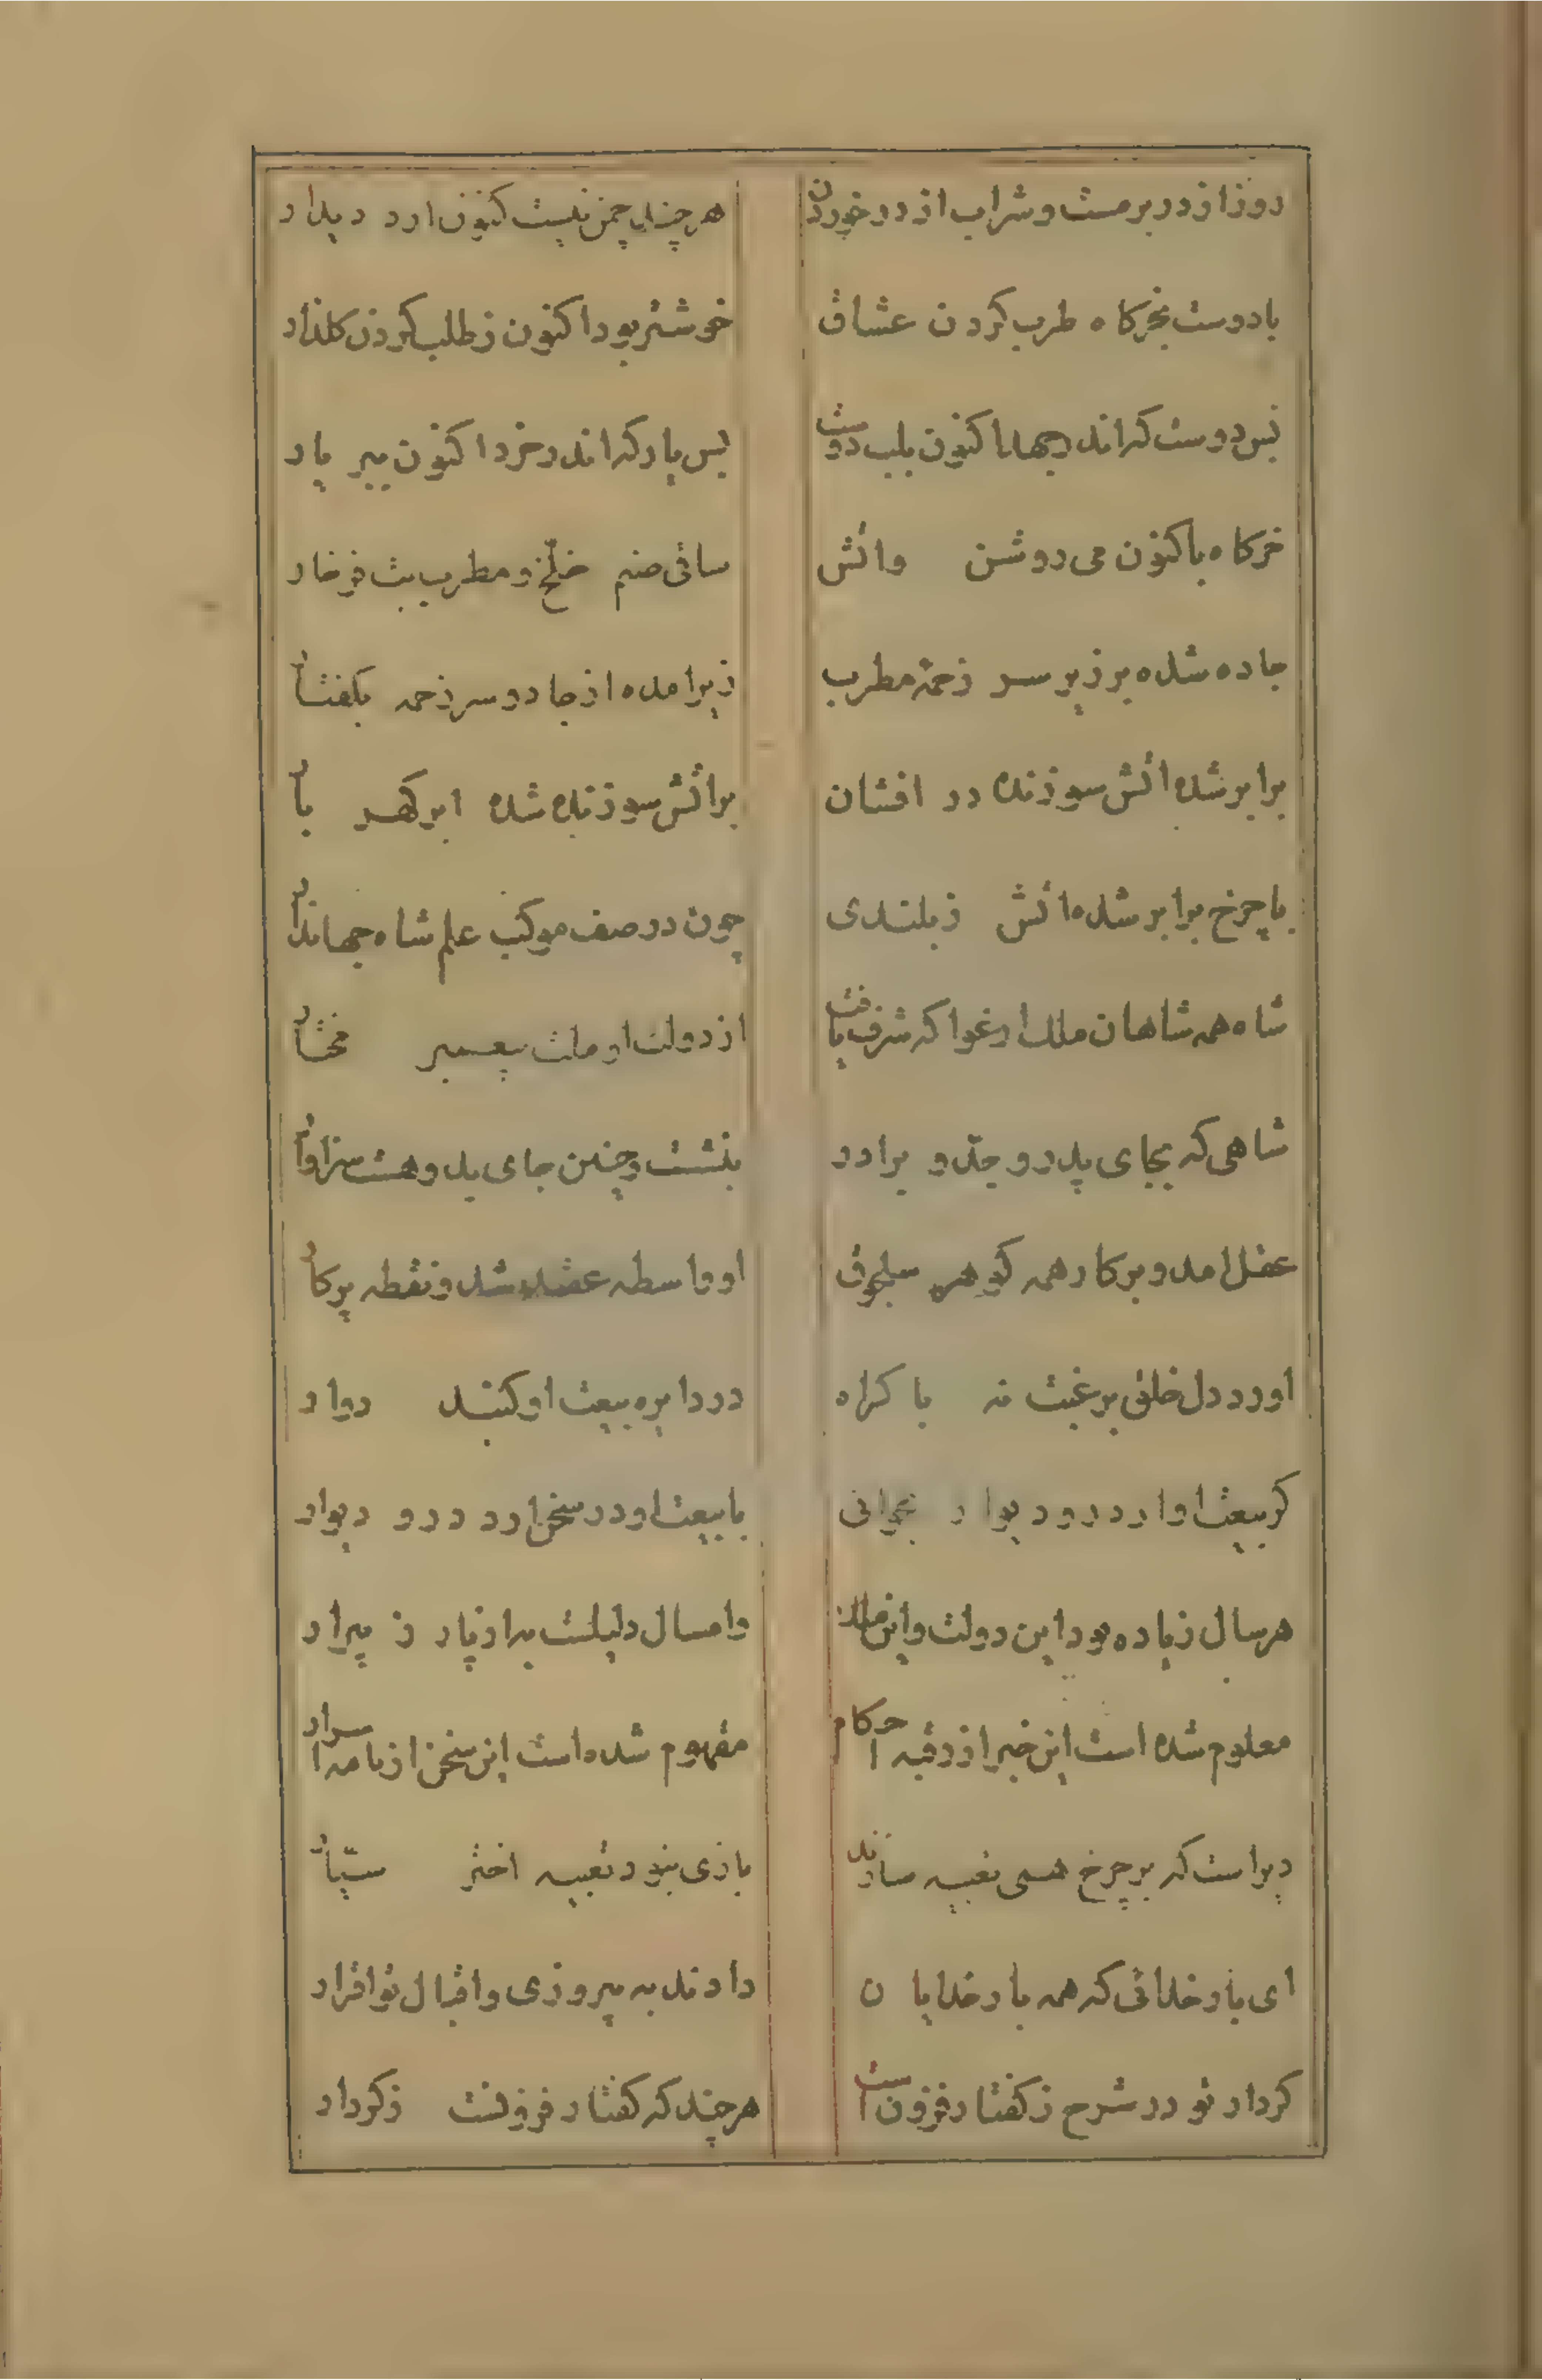 روز از در بزمست و شراب از در خوردن هر چند چمن نیست کنون ازدر دیدار
با دوست بخرکاه طرب کردن عشاق خوشتر بود اکنون ز طلب کردن کلزار
بس دوست که اندر جهد اکنون بلب دوست بس یار که اندر خزد اکنون ببر یار
خرکاه با کنون می روشن واتش ساقی صنم خلّخ و مطرب بت فرخار
جاده شده بر زیر سر زخمهٔ مطرب زیر امده از جا دو سر زخمه بکفتار
برابر شده اتش سوزنده در افشان بر اتش سوزنده شده ابر کهر بار
با چرخ برابر شده اتش ز بلندی چون در صف موکب علم شاه جهاندار
شاه همه شاهان ملک ارغو که شرف یافت از دولت او ملت پیغمبر مختار
شاهی که بجای پدر و جدّ و برادر بنشست و چنین جای بدو هست سزاوار
عقد امد و پرکار همه کوهر سلجوق او واسطه عقد شد و نقطه پرکار
اورد دل خلق برغبت نه باکراه در دایره بیعت او کنبد دوار
کر بیعت او ار در و دیوار بخوانی با بیعت او در سخن ارد در و دیوار
هر سال زیاده بود این دولت و این ملک وامسال دلیلست بر از پار و ز پیرار
معلوم شده است این خبر از دقیه احکام مفهوم شده است این سخن از نامه اسرار
دیر است که بر چرخ همی تعبیه سازند بازی نبود تعبیه اختر سیّار
ای بار خدائی که همه بار خدایان دادند به پیروزی و اقبال تو اقرار
کردار تو در شرح ز کفتار فزون است هر چند که کفتار فزونست ز کردار